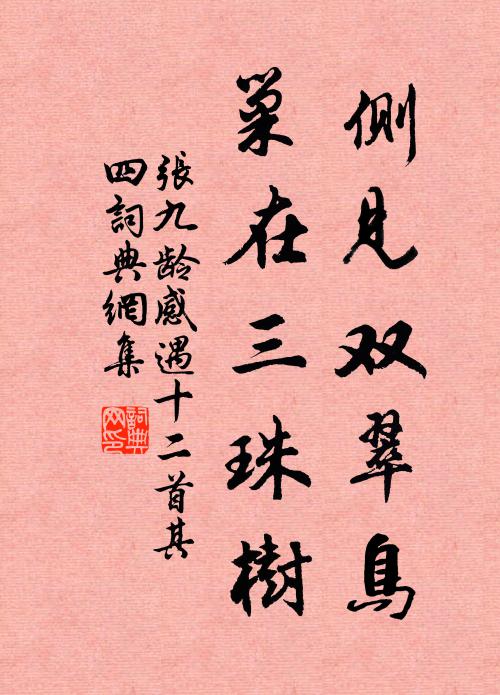 側見双翠鳥
巢在三珠樹
張九龄感遇十二首其
四詞典網集
詞典
网印